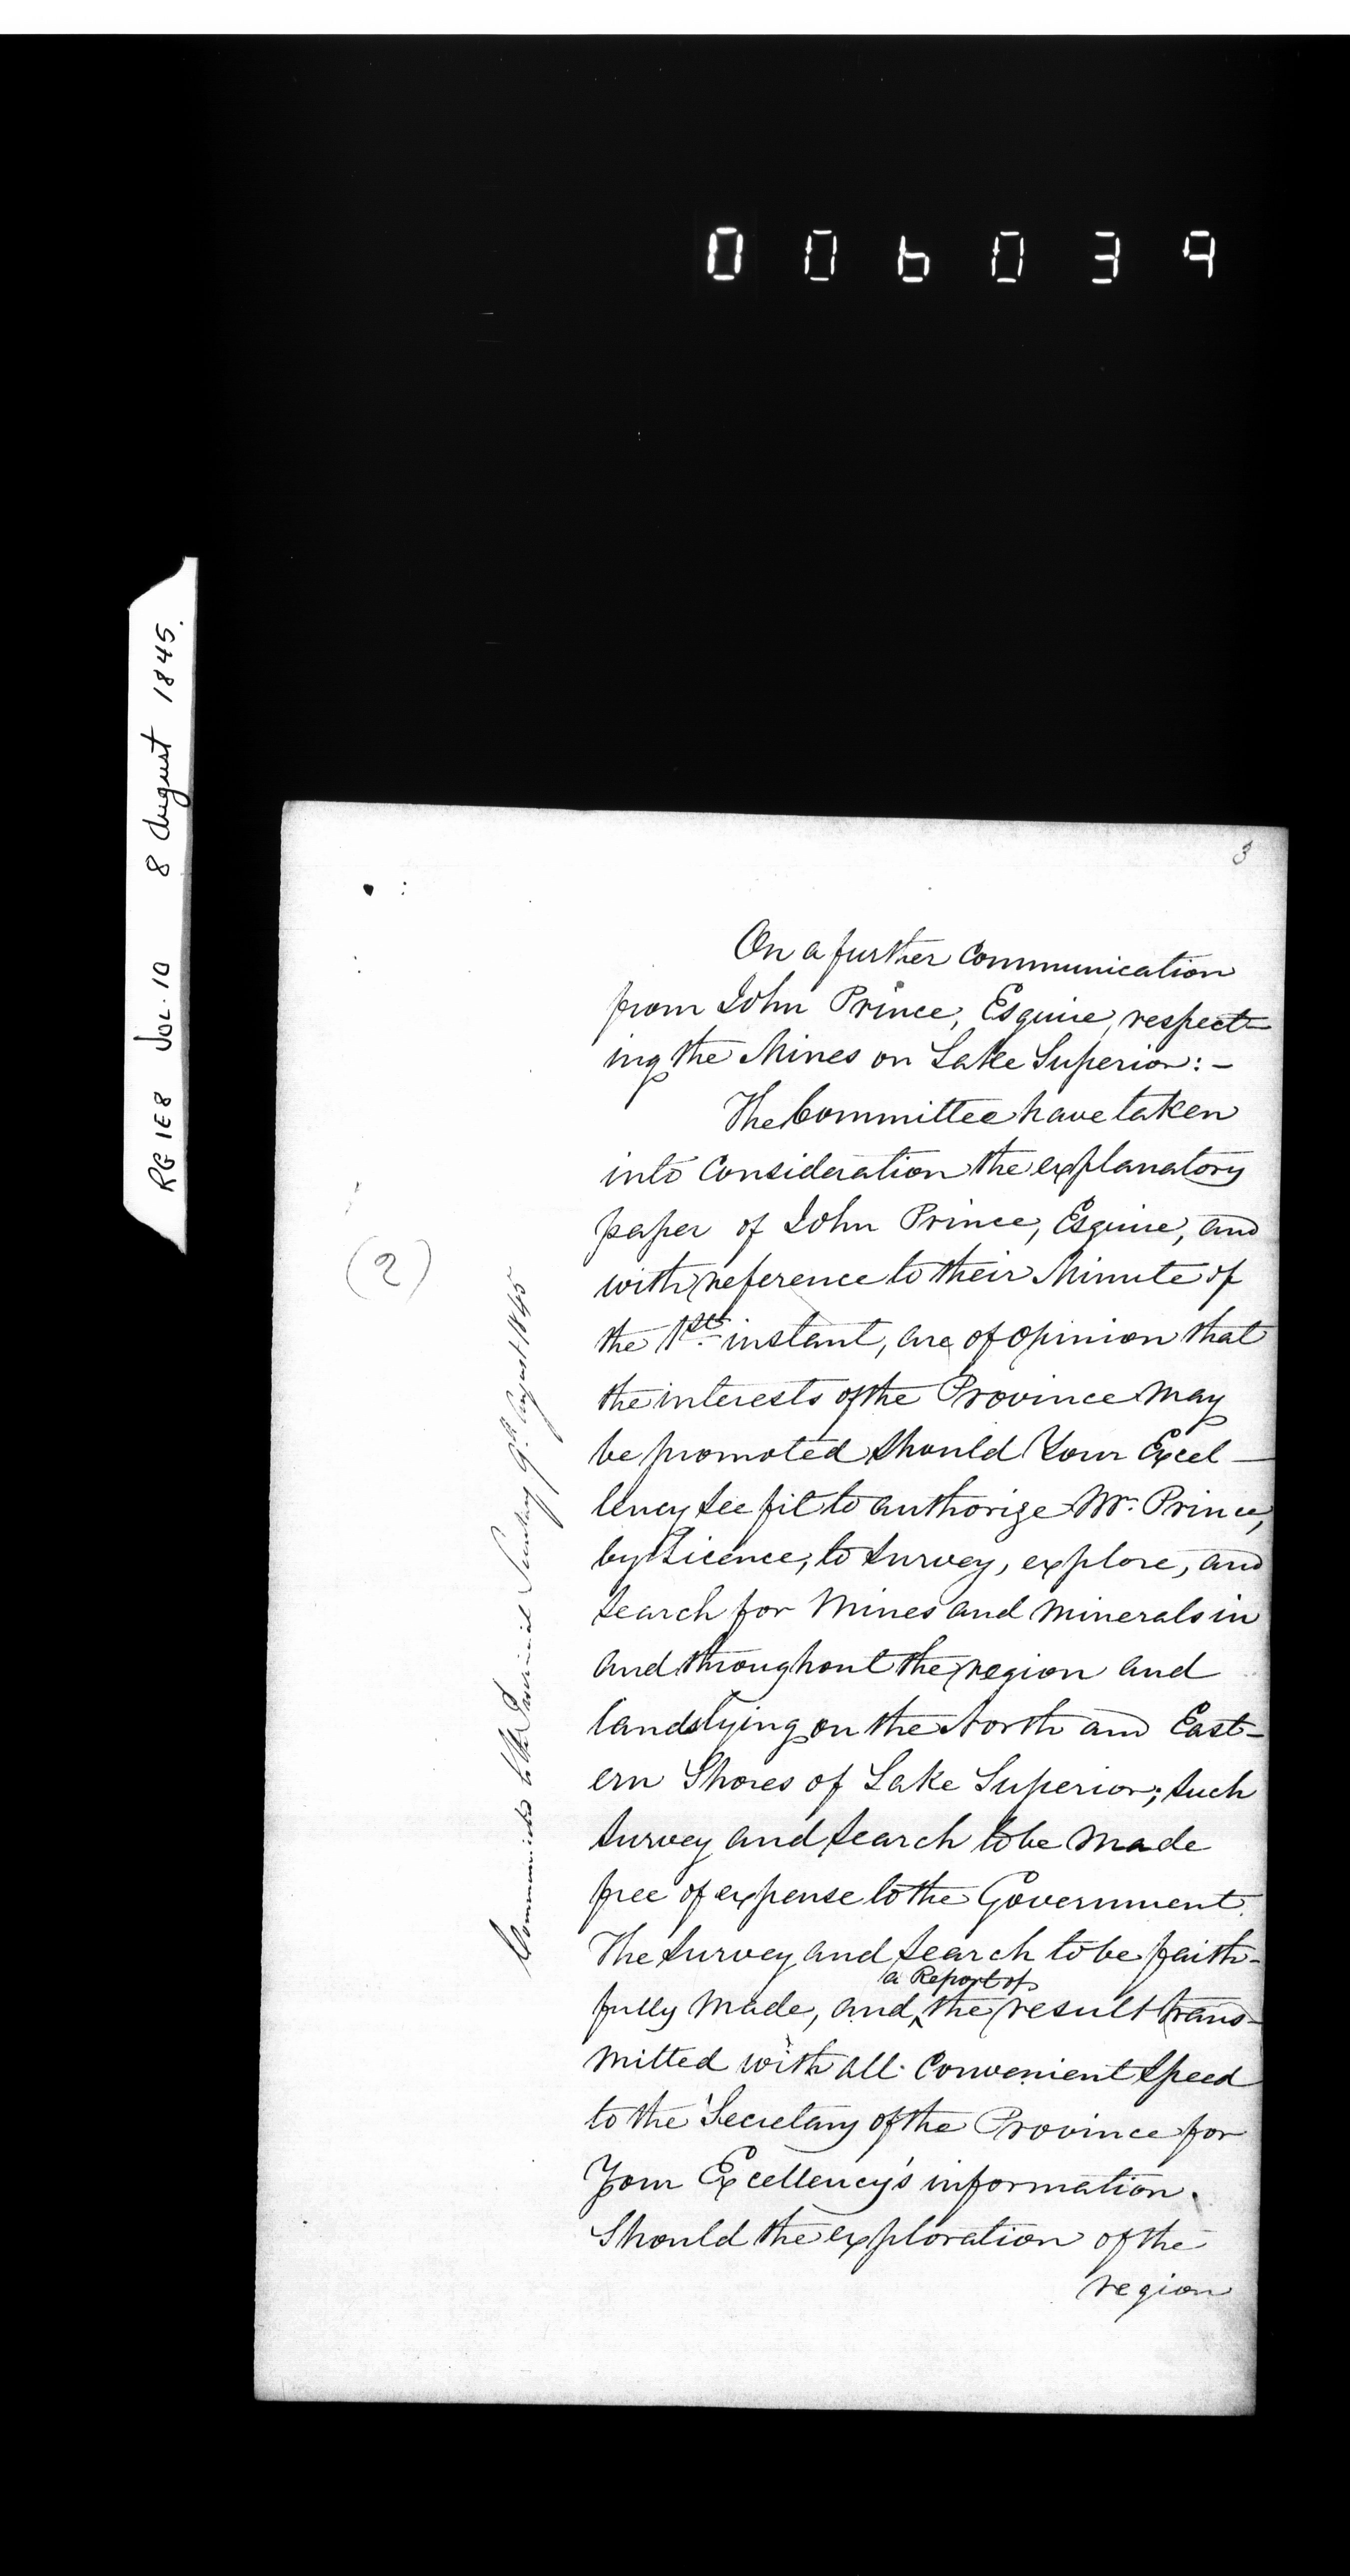 006039
RG 1E8 Vol. 10 8 August 1845.
3
On a further communication
from John Prince, Esquire, respect-
ing the Mines on Lake Superior:-
The Committee have taken
into Consideration the explanatory
paper of John Prince, Esquire, and
with reference to their Minute of
the 1st instant, are of opinion that
the interests of the Province may
be promoted should Your Excel-
lency see fit to authorize Mr. Prince,
by Licence, to survey, explore, and
search for Mines and Minerals in
and throughout the region and
lands lying on the North and East-
ern Shores of Lake Superior; such
survey and search to be made
free of expense to the Government.
The survey and search to be faith-
a Report of
fully made, and, the result trans-
mitted with all convenient speed
to the Secretary of the Province for
Your Excellency's information.
Should the exploration of the
region
(2)
Communicated to the Provincial Secretary 9th August 1845